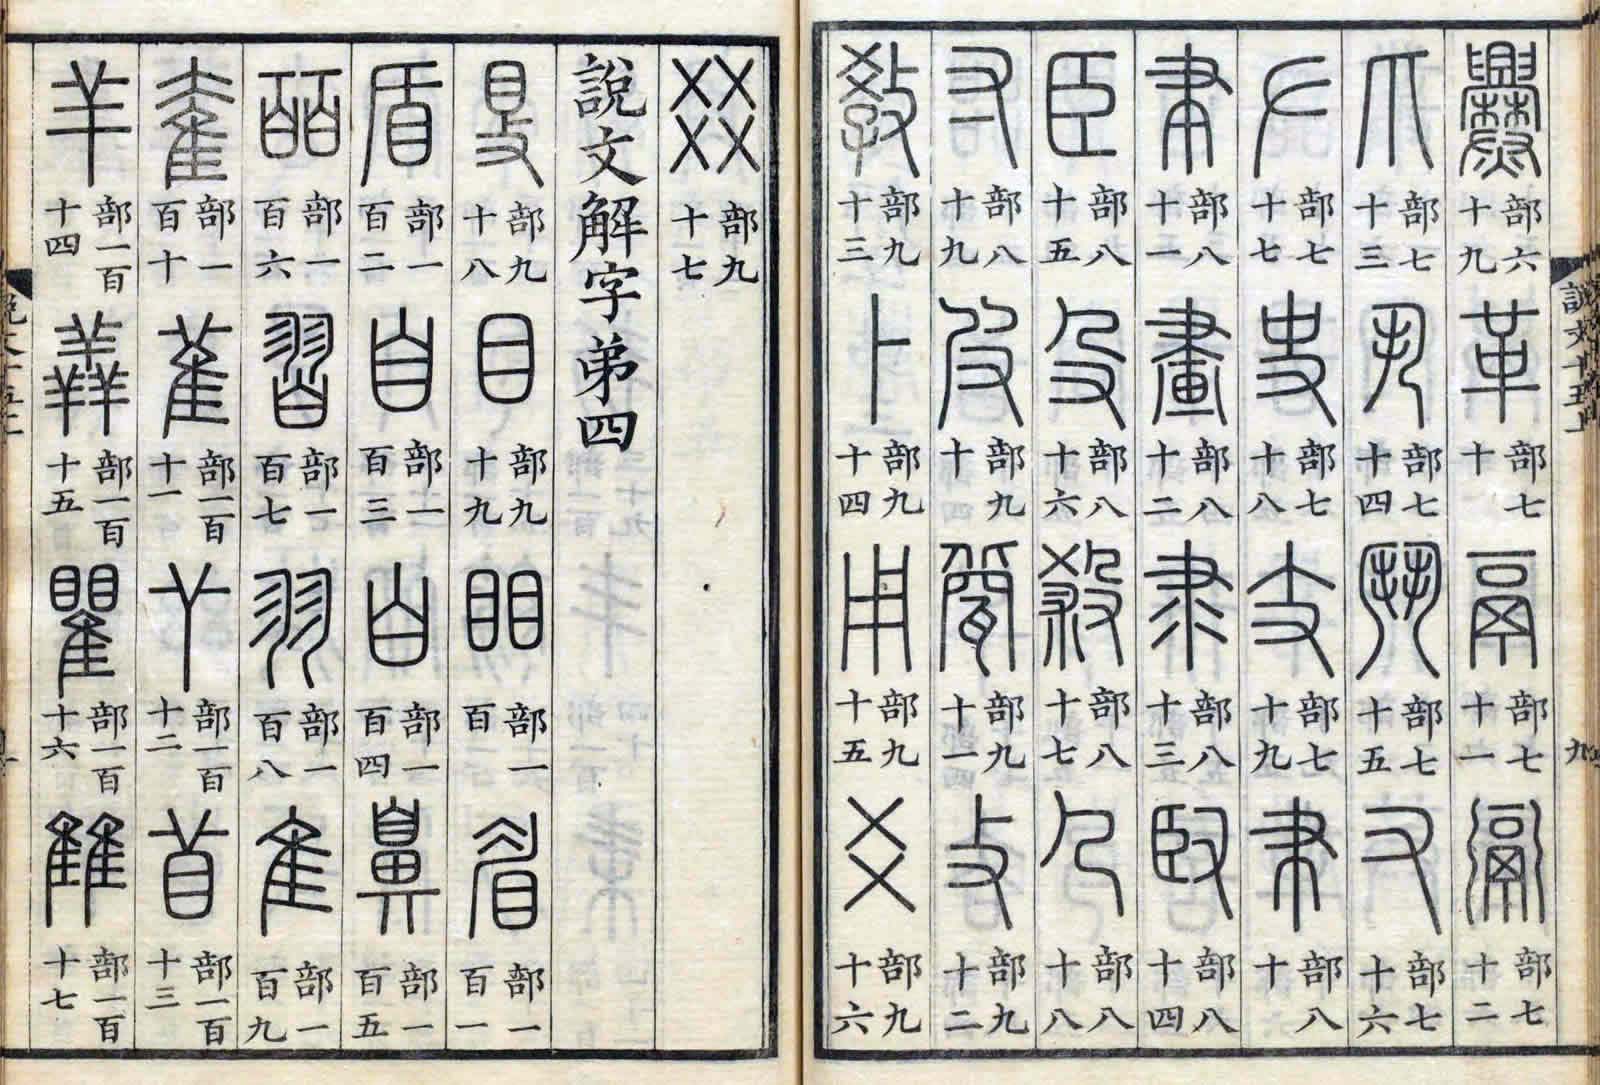 爨 部六十九 革 部七十 鬲 部七十一 䰜 部七十二
爪 部七十三 丮 部七十四 鬥 部七十五 又 部七十六
𠂇 部七十七 史 部七十八 支 部七十九 𦘒 部八十
聿 部八十一 畫 部八十二 隶 部八十三 臤 部八十四
臣 部八十五 殳 部八十六 殺 部八十七 𠘧 部八十八
寸 部八十九 皮 部九十 㼱 部九十一 攴 部九十二
教 部九十三 卜 部九十四 用 部九十五 爻 部九十六
㸚 部九十七
說文解字弟四
𥄎 部九十八 目 部九十九 䀠 部一百 眉 部一百一
盾 部一百二 自 部一百三 白 部一百四 鼻 部一百五
皕 部一百六 習 部一百七 羽 部一百八 隹 部一百九
奞 部一百十 雈 部一百十一 𦫳 部一百十二 苜 部一百十三
羊 部一百十四 羴 部一百十五 瞿 部一百十六 雔 部一百十七
說文十五上 九